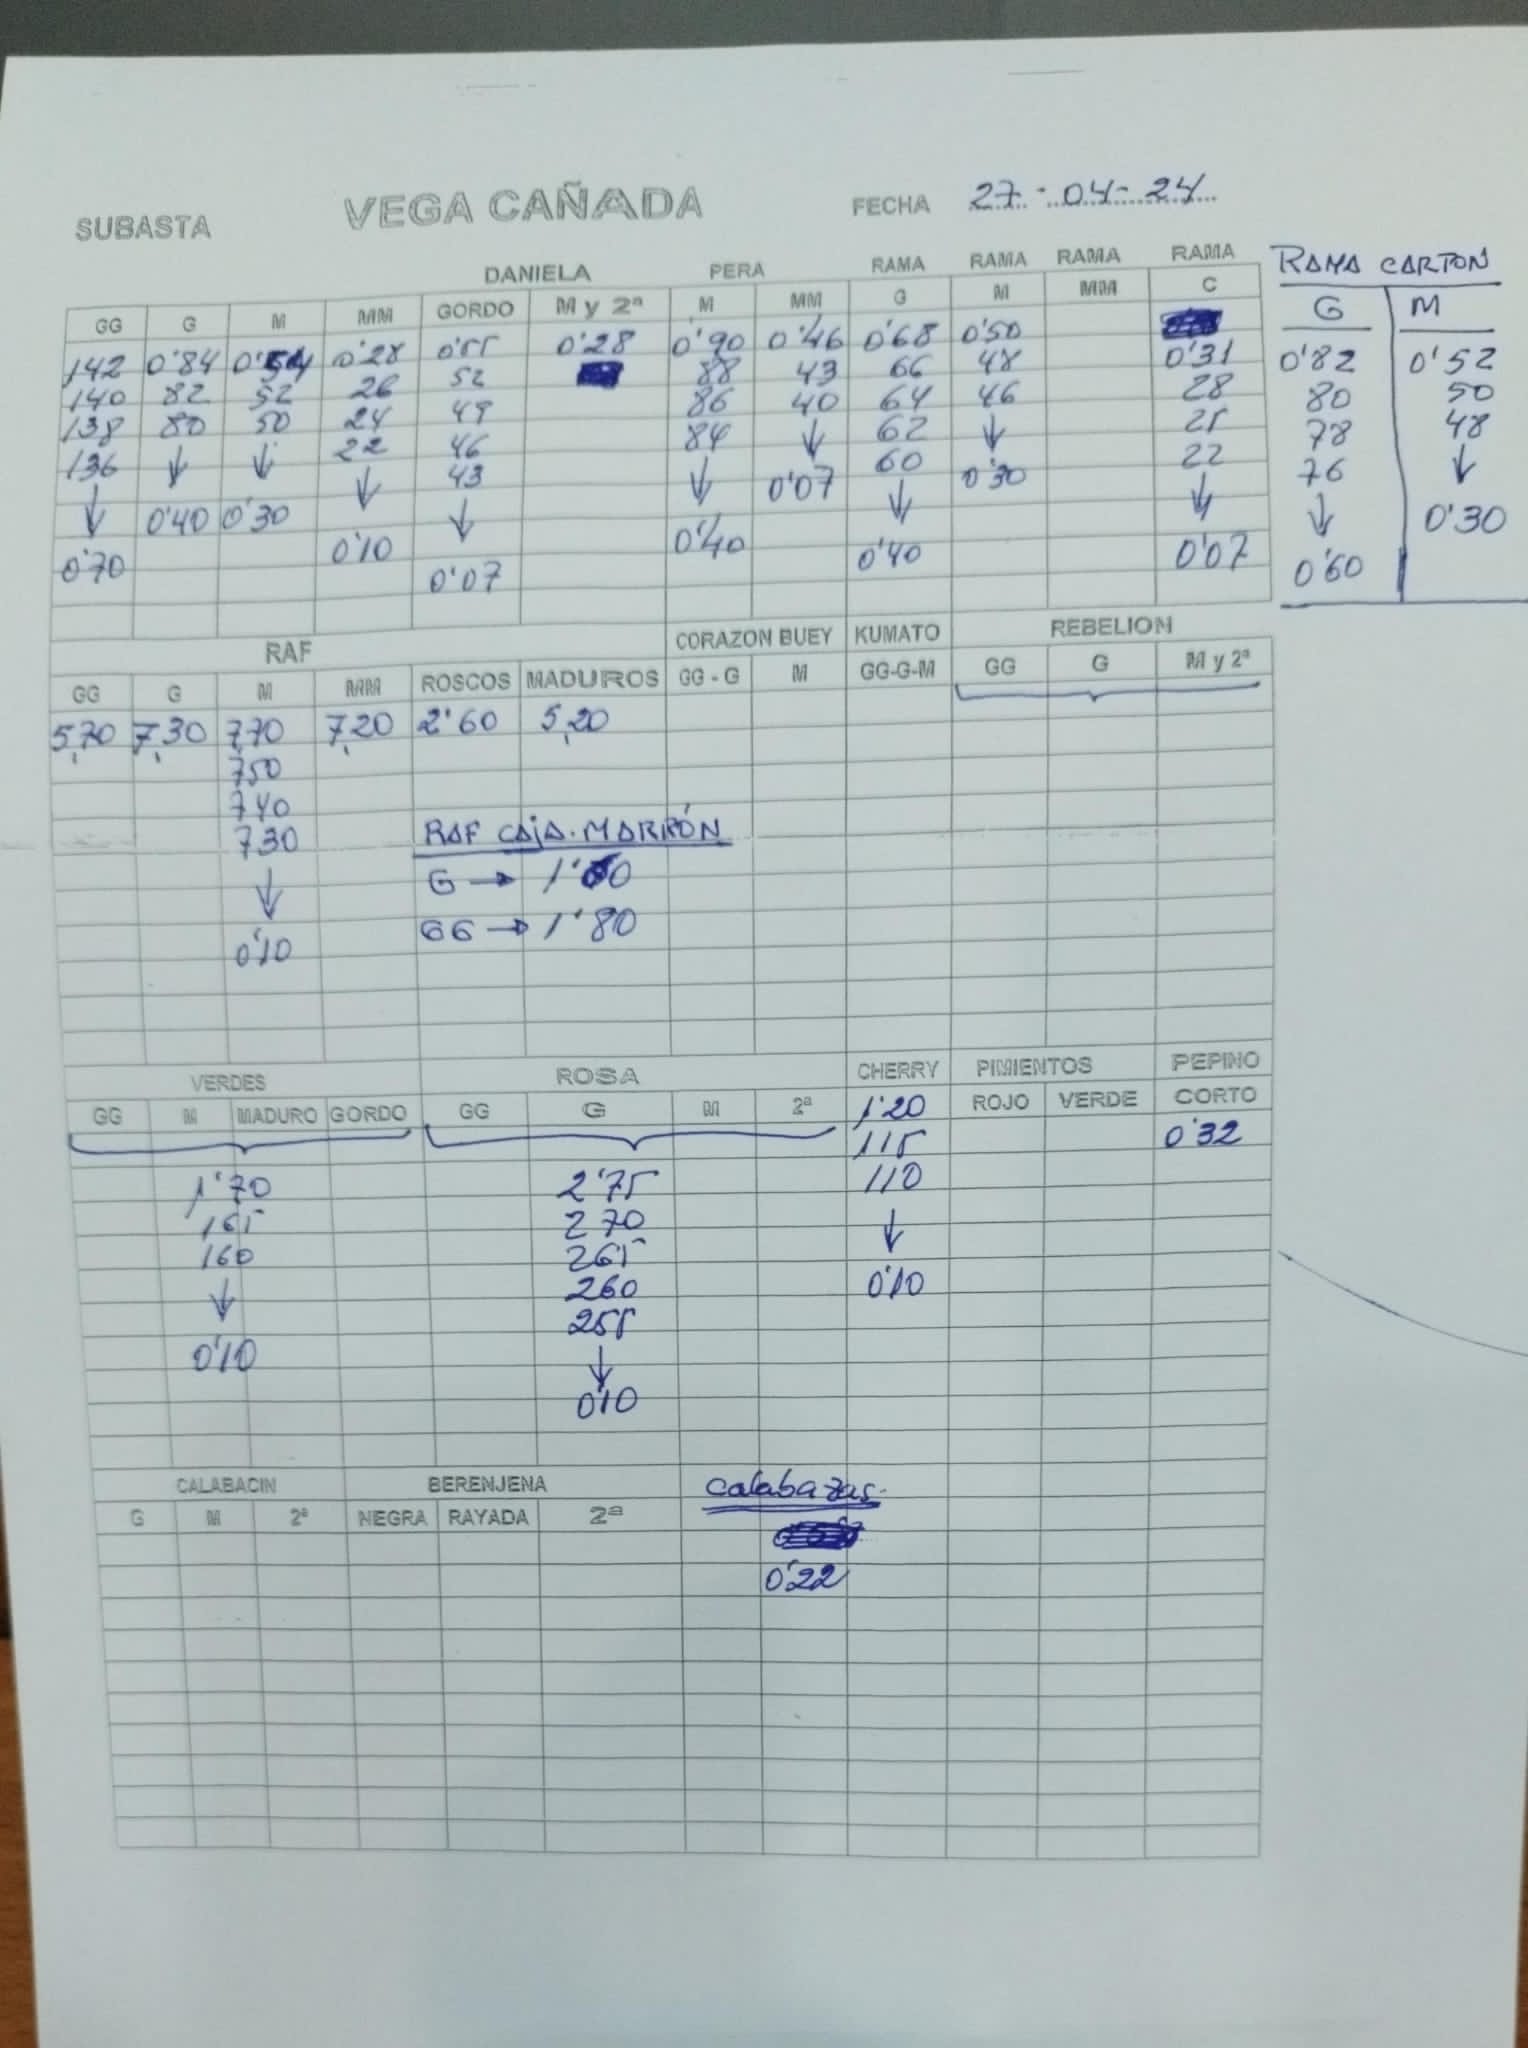 SUBASTA VEGA CAÑADA FECHA 27-04-24
DANIELA PERA RAMA RAMA RAMA RAMA RAMA CARTON
GG G M MM GORDO M y 2ª M MM G M MM C G M
142 0'84 0'54 0'28 0'55 0'28 0'90 0'46 0'68 0'50 0'31 0'82 0'52
140 82 52 26 52 88 43 66 48 28 80 50
138 80 50 24 49 86 40 64 46 25 78 48
136 ↓ ↓ 22 46 84 ↓ 62 ↓ 22 76 ↓
↓ 0'40 0'30 ↓ 43 ↓ 0'07 60 0'30 ↓ ↓ 0'30
0'70 0'10 ↓ 0'40 ↓ 0'07 0'60
0'07 0'40
RAF CORAZON BUEY KUMATO REBELION
GG G M MM ROSCOS MADUROS GG - G M GG-G-M GG G M y 2ª
5,70 7,30 7,70 7,20 2'60 5,20
750
740
730 RAF CAJA MARRÓN
↓ G → 1'60
0'10 GG → 1'80
VERDES ROSA CHERRY PIMIENTOS PEPINO
GG M MADURO GORDO GG G M 2ª 1'20 ROJO VERDE CORTO
115 0'32
1'70 2'75 110
165 270 ↓
160 265 0'10
↓ 260
0'10 255
↓
0'10
CALABACIN BERENJENA Calabazas.
G M 2ª NEGRA RAYADA 2ª
0'22